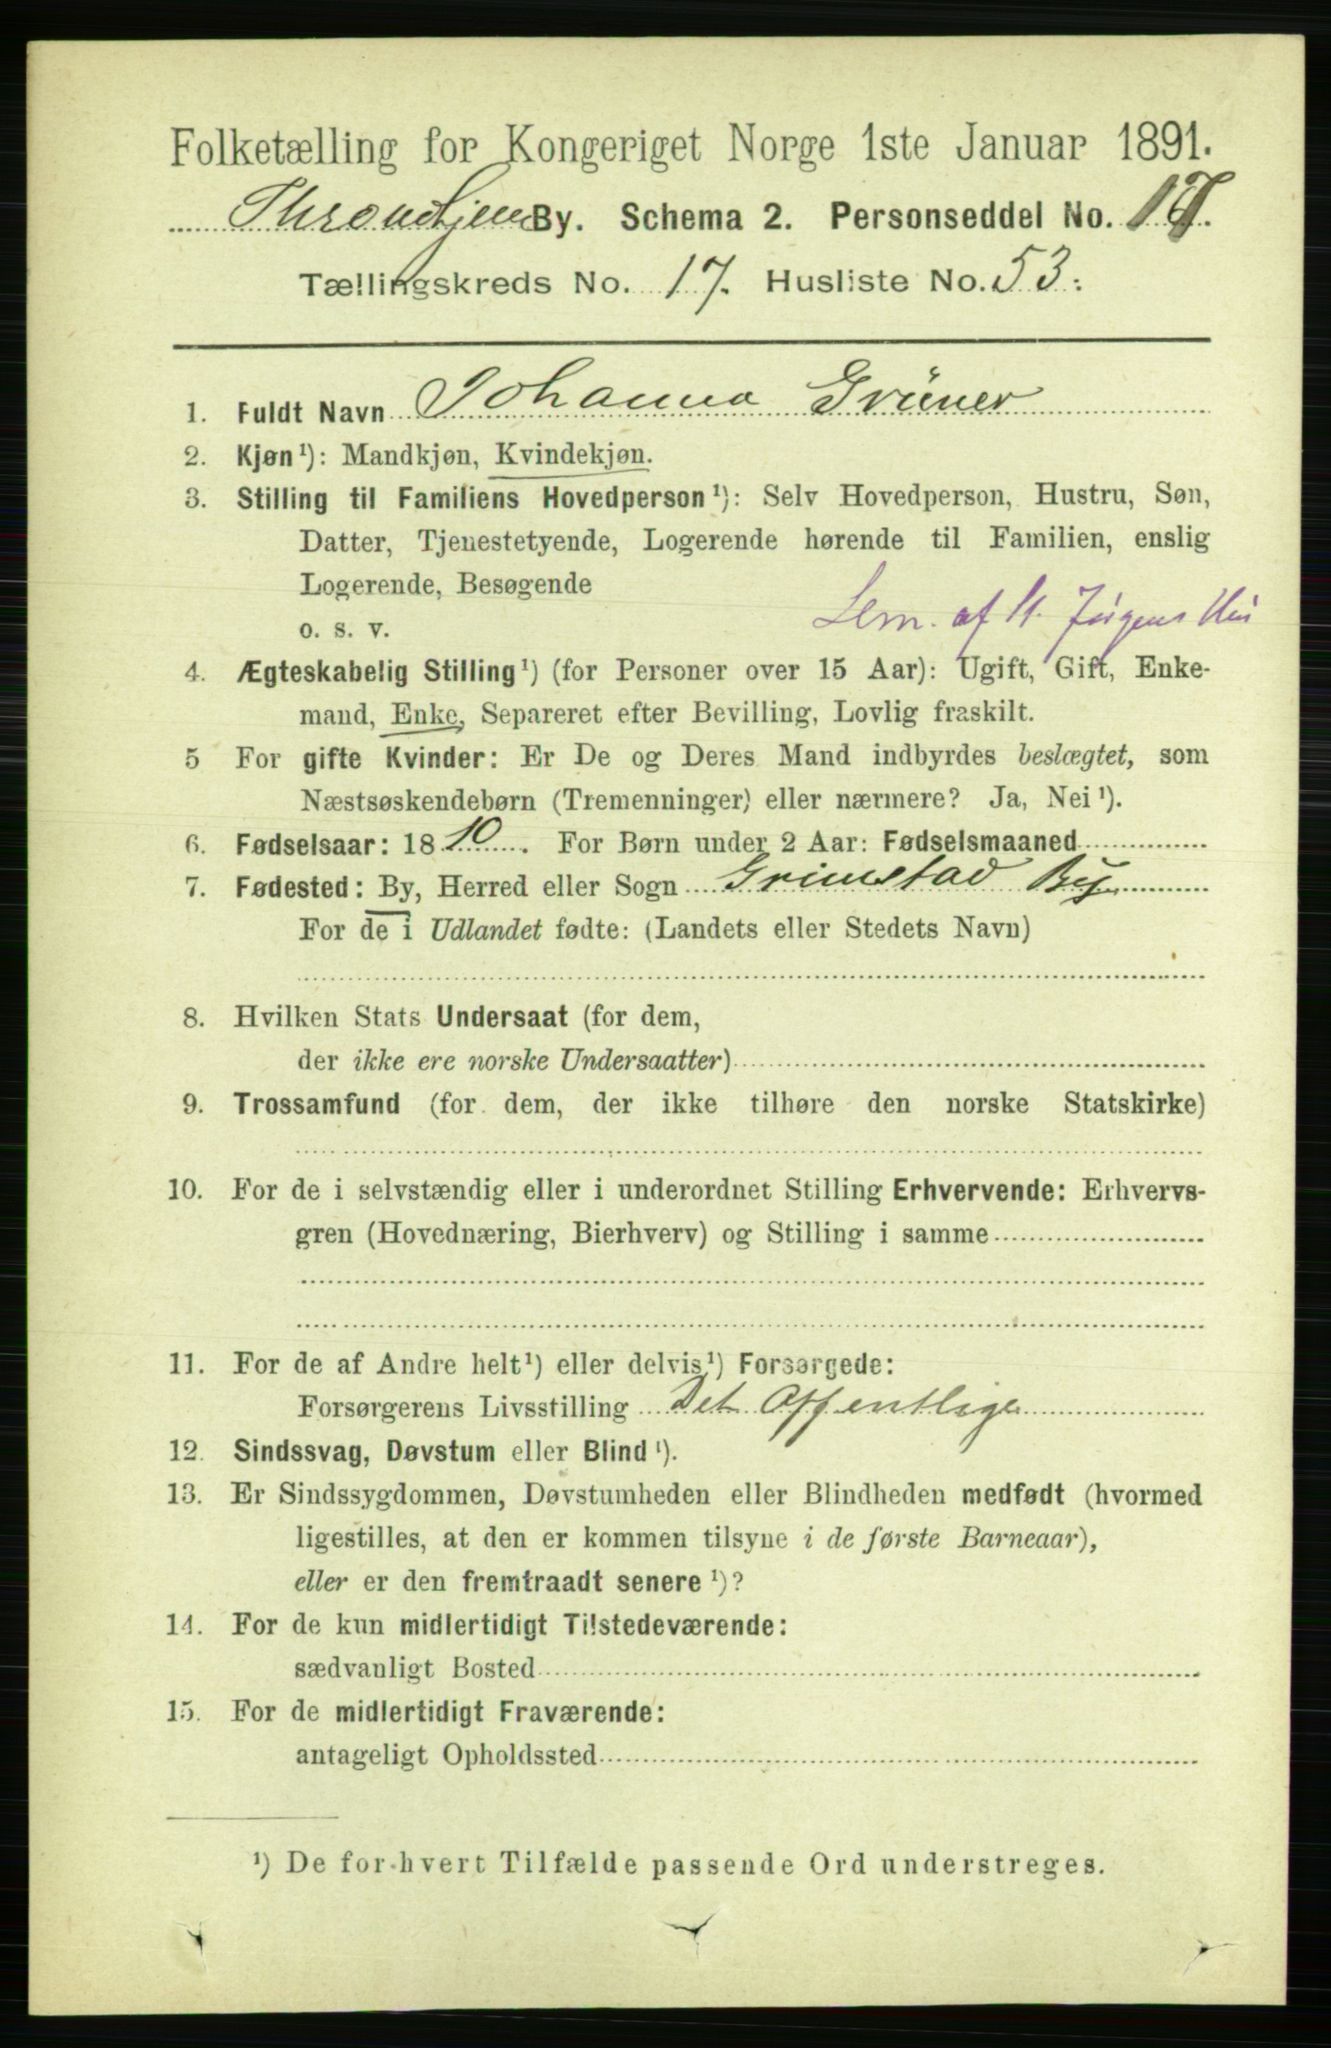 Folketælling for Kongeriget Norge 1ste Januar 1891.
Throndhjem By. Schema 2. Personseddel No. 17.
Tællingskreds No. 17. Husliste No. 53.
1. Fuldt Navn Johanna Grüner
2. Kjøn ¹): Mandkjøn, Kvindekjøn.
3. Stilling til Familiens Hovedperson ¹): Selv Hovedperson, Hustru, Søn,
Datter, Tjenestetyende, Logerende hørende til Familien, enslig
Logerende, Besøgende
o. s. v.
Lem. af St. Jørgens Hus
4. Ægteskabelig Stilling ¹) (for Personer over 15 Aar): Ugift, Gift, Enke-
mand, Enke, Separeret efter Bevilling, Lovlig fraskilt.
5 For gifte Kvinder: Er De og Deres Mand indbyrdes beslægtet, som
Næstsøskendebørn (Tremenninger) eller nærmere? Ja, Nei ¹).
6. Fødselsaar: 1810. For Børn under 2 Aar: Fødselsmaaned
7. Fødested: By, Herred eller Sogn Grimstad By
For de i Udlandet fødte: (Landets eller Stedets Navn)
8. Hvilken Stats Undersaat (for dem,
der ikke ere norske Undersaatter)
9. Trossamfund (for dem, der ikke tilhøre den norske Statskirke)
10. For de i selvstændig eller i underordnet Stilling Erhvervende: Erhvervs-
gren (Hovednæring, Bierhverv) og Stilling i samme
11. For de af Andre helt ¹) eller delvis ¹) Forsørgede:
Forsørgerens Livsstilling Det Offentlige
12. Sindssvag, Døvstum eller Blind ¹).
13. Er Sindssygdommen, Døvstumheden eller Blindheden medfødt (hvormed
ligestilles, at den er kommen tilsyne i de første Barneaar),
eller er den fremtraadt senere ¹)?
14. For de kun midlertidigt Tilstedeværende:
sædvanligt Bosted
15. For de midlertidigt Fraværende:
antageligt Opholdssted
¹) De for hvert Tilfælde passende Ord understreges.